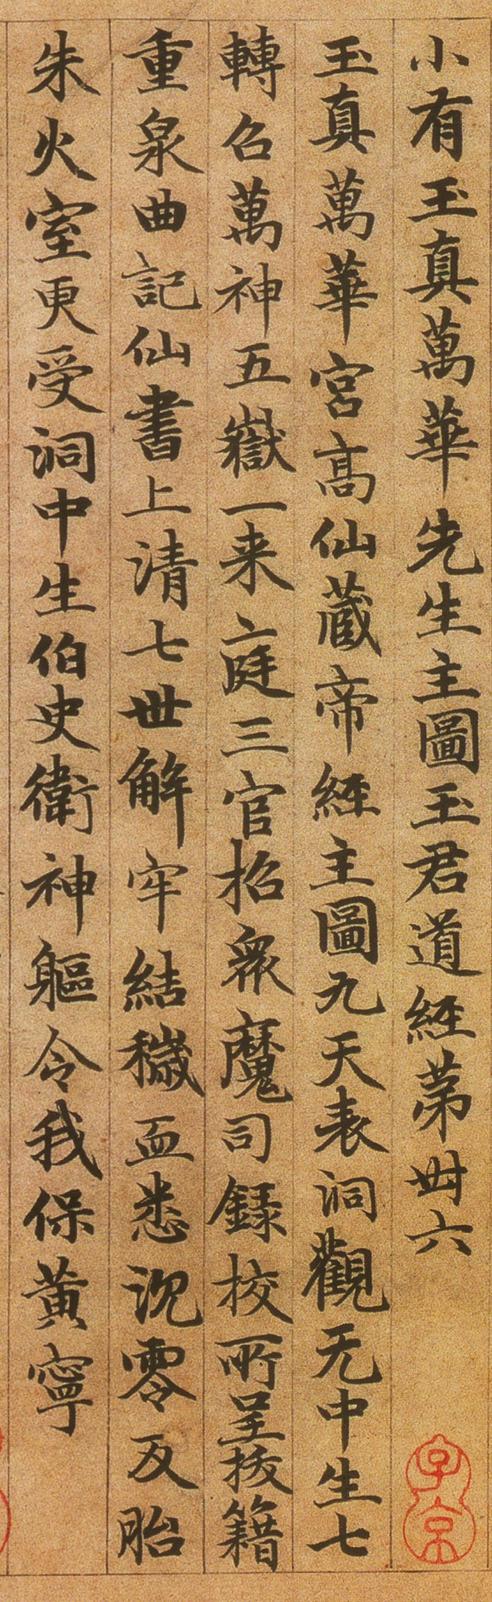 小有玉真萬華先生主圖玉君道經苐卌六
玉真萬華宮高仙蔵帝經主圖九天表洞觀无中生七
轉召萬神五嶽一来庭三官招衆魔司録挍所呈挍籍
重泉曲記仙書上清七世解牢結穢血悉沉零反胎
朱火室更受洞中生伯史衛神軀令我保黄寧
子京